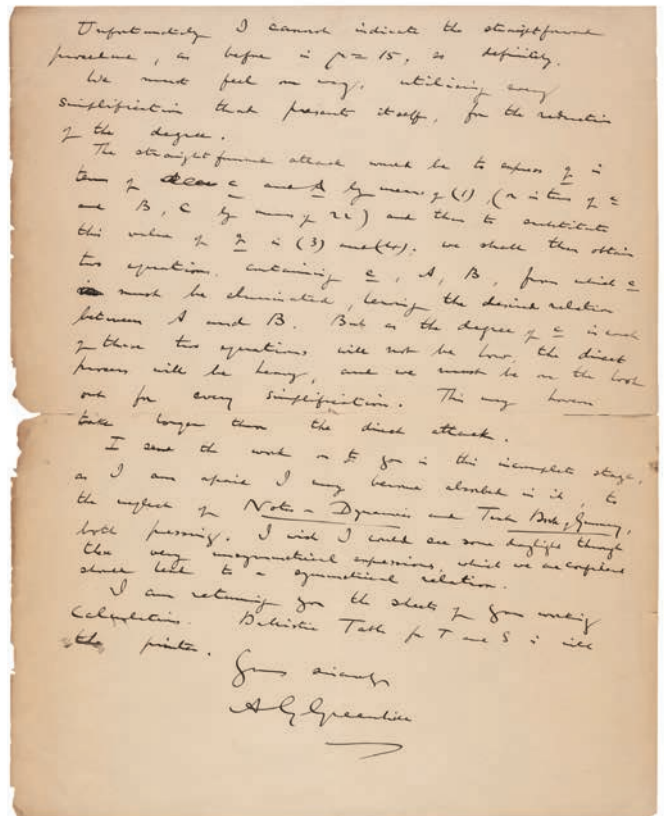 Unfortunately I cannot indicate the straightforward
procedure, as before in μ = 15, so definitely.
We must feel our way, utilising every
simplification that presents itself, for the reduction
of the degree.
The straightforward attack would be to express q in
terms of c and A by means of (1), (r in terms of c
and B, C by means of 22) and then to substitute
this value of q in (3) and (4). we shall then obtain
two equations, containing c, A, B, from which c
must be eliminated, leaving the desired relation
between A and B. But as the degree of c in each
of those two equations will not be low, the direct
process will be heavy, and we must be on the look
out for every simplification. This may however
take longer than the direct attack.
I send the work on to you in this incomplete stage,
as I am afraid I may become absorbed in it, to
the neglect of Notes on Dynamics and Text Book of Gunnery,
both pressing. I wish I could see some daylight through
these very unsymmetrical expressions, which we are confident
should lead to a symmetrical relation.
I am returning you the sheets of your working
Calculations. Ballistic Table for T and S is with
the printer.
Yours sincerely
A G Greenhill